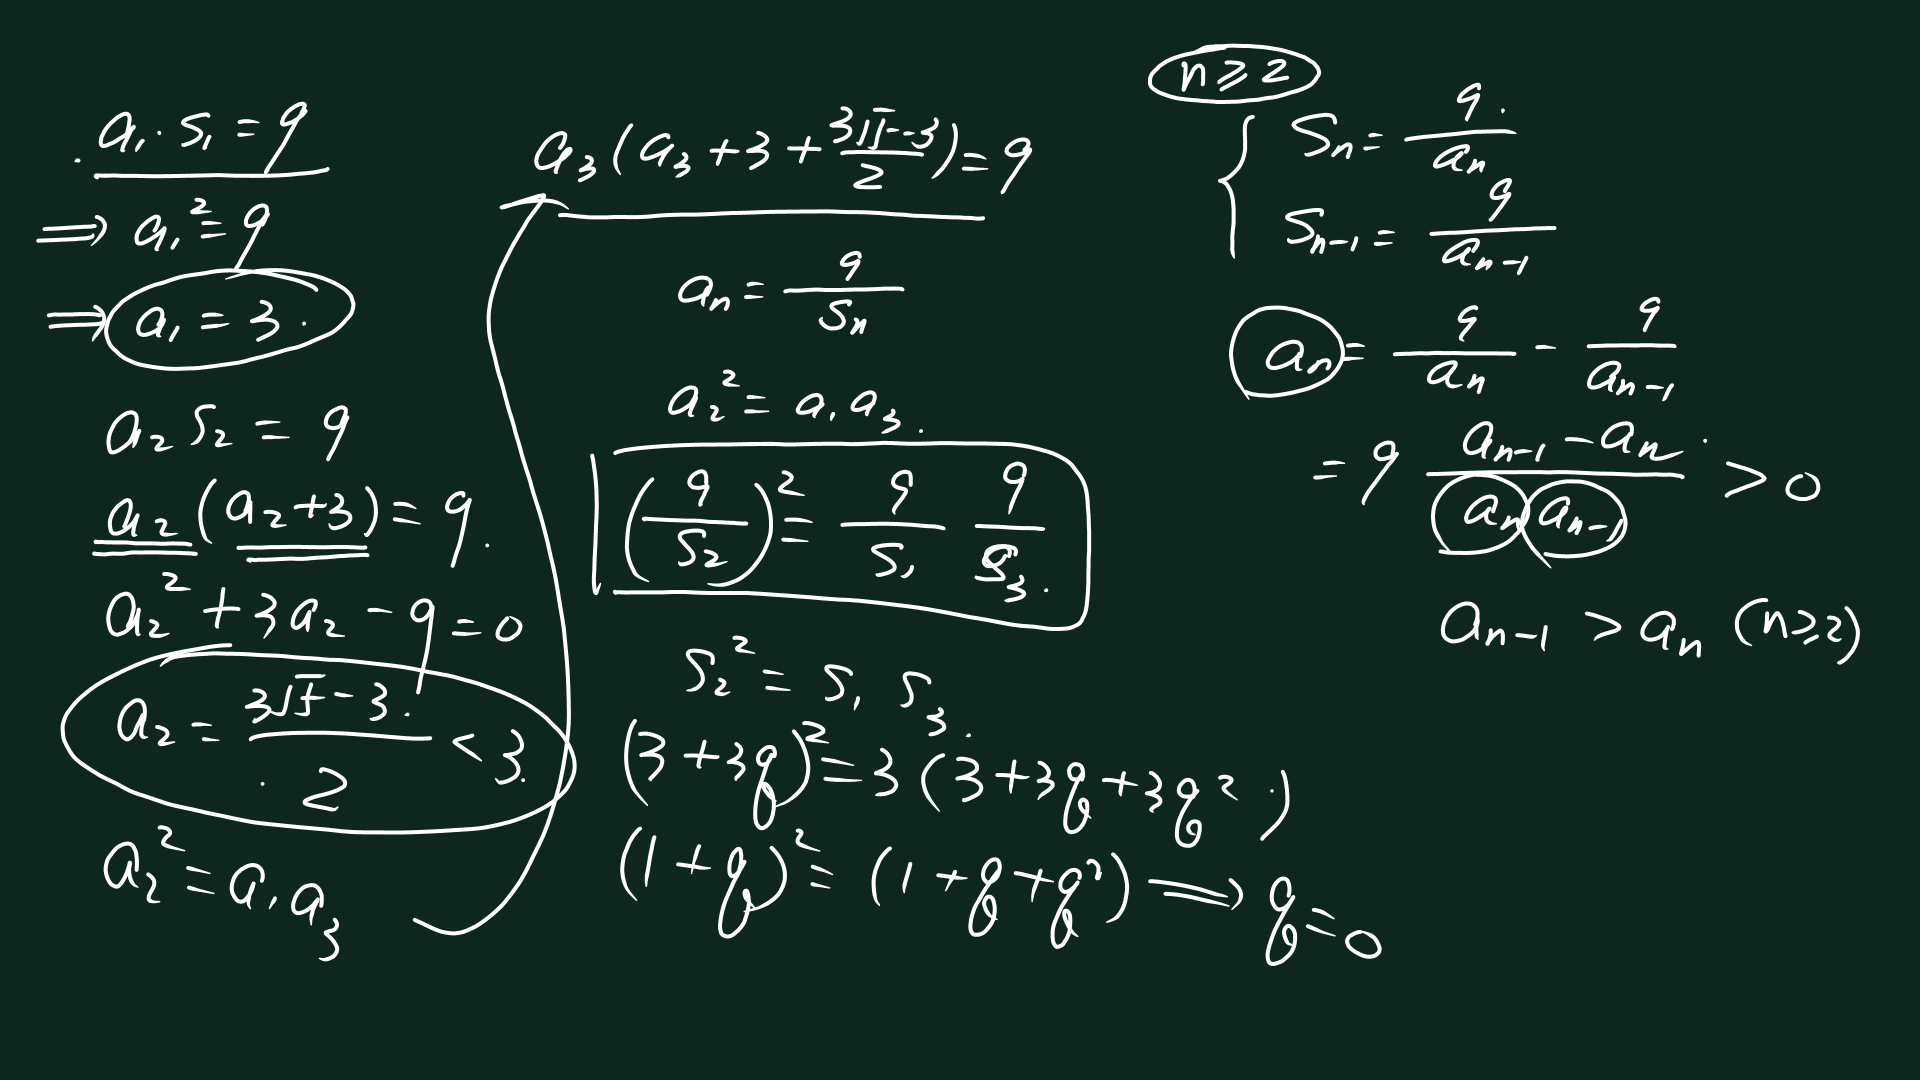 a₁·S₁=9
⇒ a₁²=9
⇒ a₁=3.
a₂S₂=9
a₂(a₂+3)=9.
a₂²+3a₂-9=0
a₂=(3√5-3)/2<3.
a₂²=a₁a₃
a₃(a₃+3+(3√5-3)/2)=9
aₙ=9/Sₙ
a₂²=a₁a₃.
(9/S₂)²=9/S₁ 9/S₃.
S₂²=S₁S₃.
(3+3q)²=3(3+3q+3q².)
(1+q)²=(1+q+q²)⇒q=0
n⩾2
{Sₙ=9/aₙ
Sₙ₋₁=9/aₙ₋₁
aₙ=9/aₙ-9/aₙ₋₁
=9 (aₙ₋₁-aₙ)/(aₙaₙ₋₁)>0
aₙ₋₁>aₙ (n⩾2)